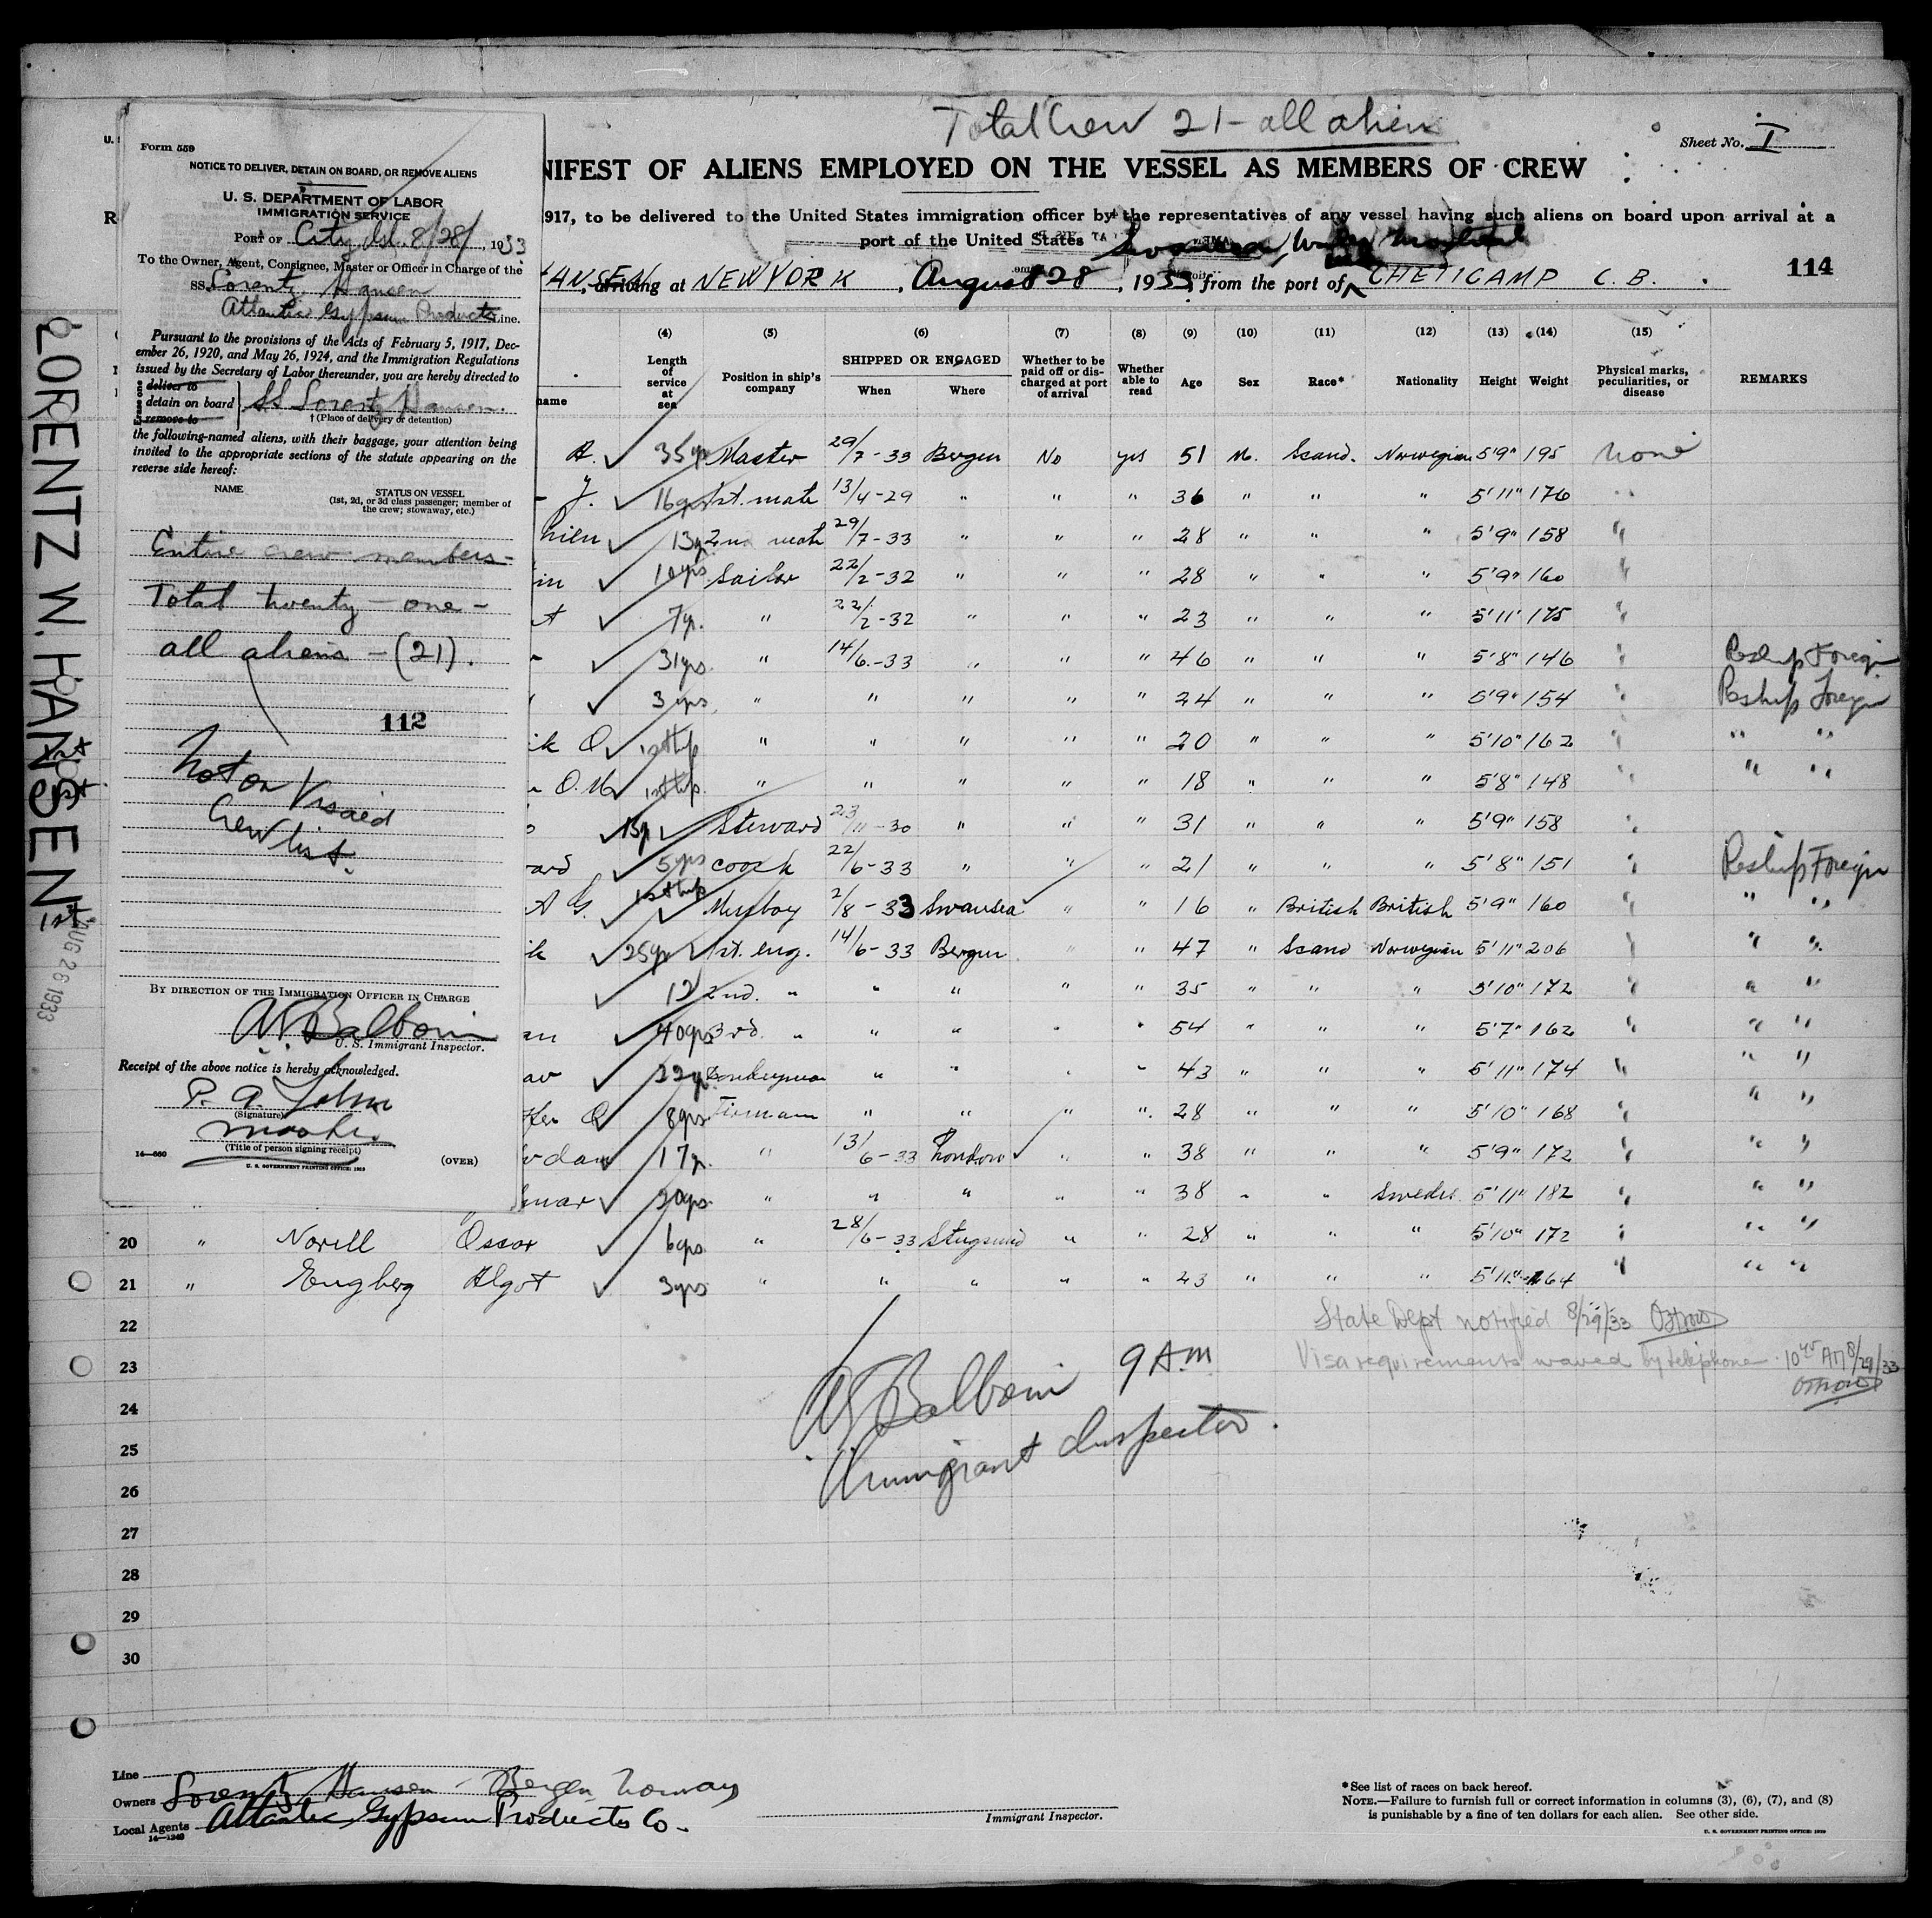 Total Crew 21 - all aliens
Sheet No. I
NIFEST OF ALIENS EMPLOYED ON THE VESSEL AS MEMBERS OF CREW
1917, to be delivered to the United States immigration officer by the representatives of any vessel having such aliens on board upon arrival at a
port of the United States
arriving at NEW YORK, August 28, 1933, from the port of CHETICAMP C. B.
114
LORENTZ W. HANSEN
AUG 26 1933
Form 559
NOTICE TO DELIVER, DETAIN ON BOARD, OR REMOVE ALIENS
U. S. DEPARTMENT OF LABOR
IMMIGRATION SERVICE
PORT OF City Isl. 8/28/, 1933
To the Owner, Agent, Consignee, Master or Officer in Charge of the
SS Lorentz Hansen
Atlantic Gypsum Products Line.
Pursuant to the provisions of the Acts of February 5, 1917, Dec-
ember 26, 1920, and May 26, 1924, and the Immigration Regulations
issued by the Secretary of Labor thereunder, you are hereby directed to
Erase one
deliver to
detain on board
remove to
SS Lorentz Hansen.
† (Place of delivery or detention)
the following-named aliens, with their baggage, your attention being
invited to the appropriate sections of the statute appearing on the
reverse side hereof:
NAME
STATUS ON VESSEL
(1st, 2d, or 3d class passenger; member of
the crew; stowaway, etc.)
Entire crew members -
Total twenty - one -
all aliens - (21).
112
Not on Visaed
Crew list.
BY DIRECTION OF THE IMMIGRATION OFFICER IN CHARGE
U. S. Immigrant Inspector.
Receipt of the above notice is hereby acknowledged.
(Signature)
Master
(Title of person signing receipt)
14—660
U. S. GOVERNMENT PRINTING OFFICE: 1929
(OVER)
(4) Length of service at sea
(5) Position in ship's company
(6) SHIPPED OR ENGAGED When Where
(7) Whether to be paid off or discharged at port of arrival
(8) Whether able to read
(9) Age
(10) Sex
(11) Race*
(12) Nationality
(13) Height
(14) Weight
(15) Physical marks, peculiarities, or disease
REMARKS
name
A. 35 yrs Master 29/7-33 Bergen No yes 51 M. Scand. Norwegian 5'9" 195 None
J. 16 yrs 1st. mate 13/4-29 " " " 36 " " " 5'11" 176 "
13 y. 2nd mate 29/7-33 " " " 28 " " " 5'9" 158 "
in 10 yrs Sailor 22/2-32 " " " 28 " " " 5'9" 160 "
t 7 y. " 22/2-32 " " " 23 " " " 5'11" 175 "
31 yrs " 14/6-33 " " " 46 " " " 5'8" 146 " Reship Foreign
3 yrs " " " " " 24 " " " 5'9" 154 " Reship Foreign
ik O. 1st trip " " " " " 20 " " " 5'10" 162 " " "
O. M. 1st trip " " " " " 18 " " " 5'8" 148 " " "
o 13 y Steward 23/11-30 " " " 31 " " " 5'9" 158 "
ard 5 yrs coock 22/6-33 " " " 21 " " " 5'8" 151 " Reship Foreign
A G. 1st trip Messboy 2/8-33 Swansea " " 16 " British British 5'9" 160 " " "
ik 25 yr 1st. eng. 14/6-33 Bergen " " 47 " Scand Norwegian 5'11" 206 " " "
12 2nd. " " " " " 35 " " " 5'10" 172 " " "
an 40 yrs 3rd. " " " " " 54 " " " 5'7" 162 " " "
av 22 y. Donkeyman " " " " 43 " " " 5'11" 174 " " "
8 yrs Fireman " " " " 28 " " " 5'10" 168 " " "
17 y. " 13/6-33 London " " 38 " " " 5'9" 172 " " "
mar 20 yrs. " " " " " 38 " " Swedes 5'11" 182 " " "
20 " Norell Oscar 6 yrs. " 28/6-33 Stugsund " " 28 " " " 5'10" 172 " " "
21 " Engberg Algot 3 yrs " " " " " 23 " " " 5'11" 164 " " "
22 State Dept notified 8/29/33
23 9 AM Visa requirements waved by telephone 10 45 AM 8/29/33
24
25 Immigrant Inspector.
26
27
28
29
30
Line
Owners Lorentz Hansen - Bergen, Norway
Local Agents Atlantic Gypsum Products Co.
14—1240
Immigrant Inspector.
*See list of races on back hereof.
NOTE.—Failure to furnish full or correct information in columns (3), (6), (7), and (8)
is punishable by a fine of ten dollars for each alien. See other side.
U. S. GOVERNMENT PRINTING OFFICE: 1929